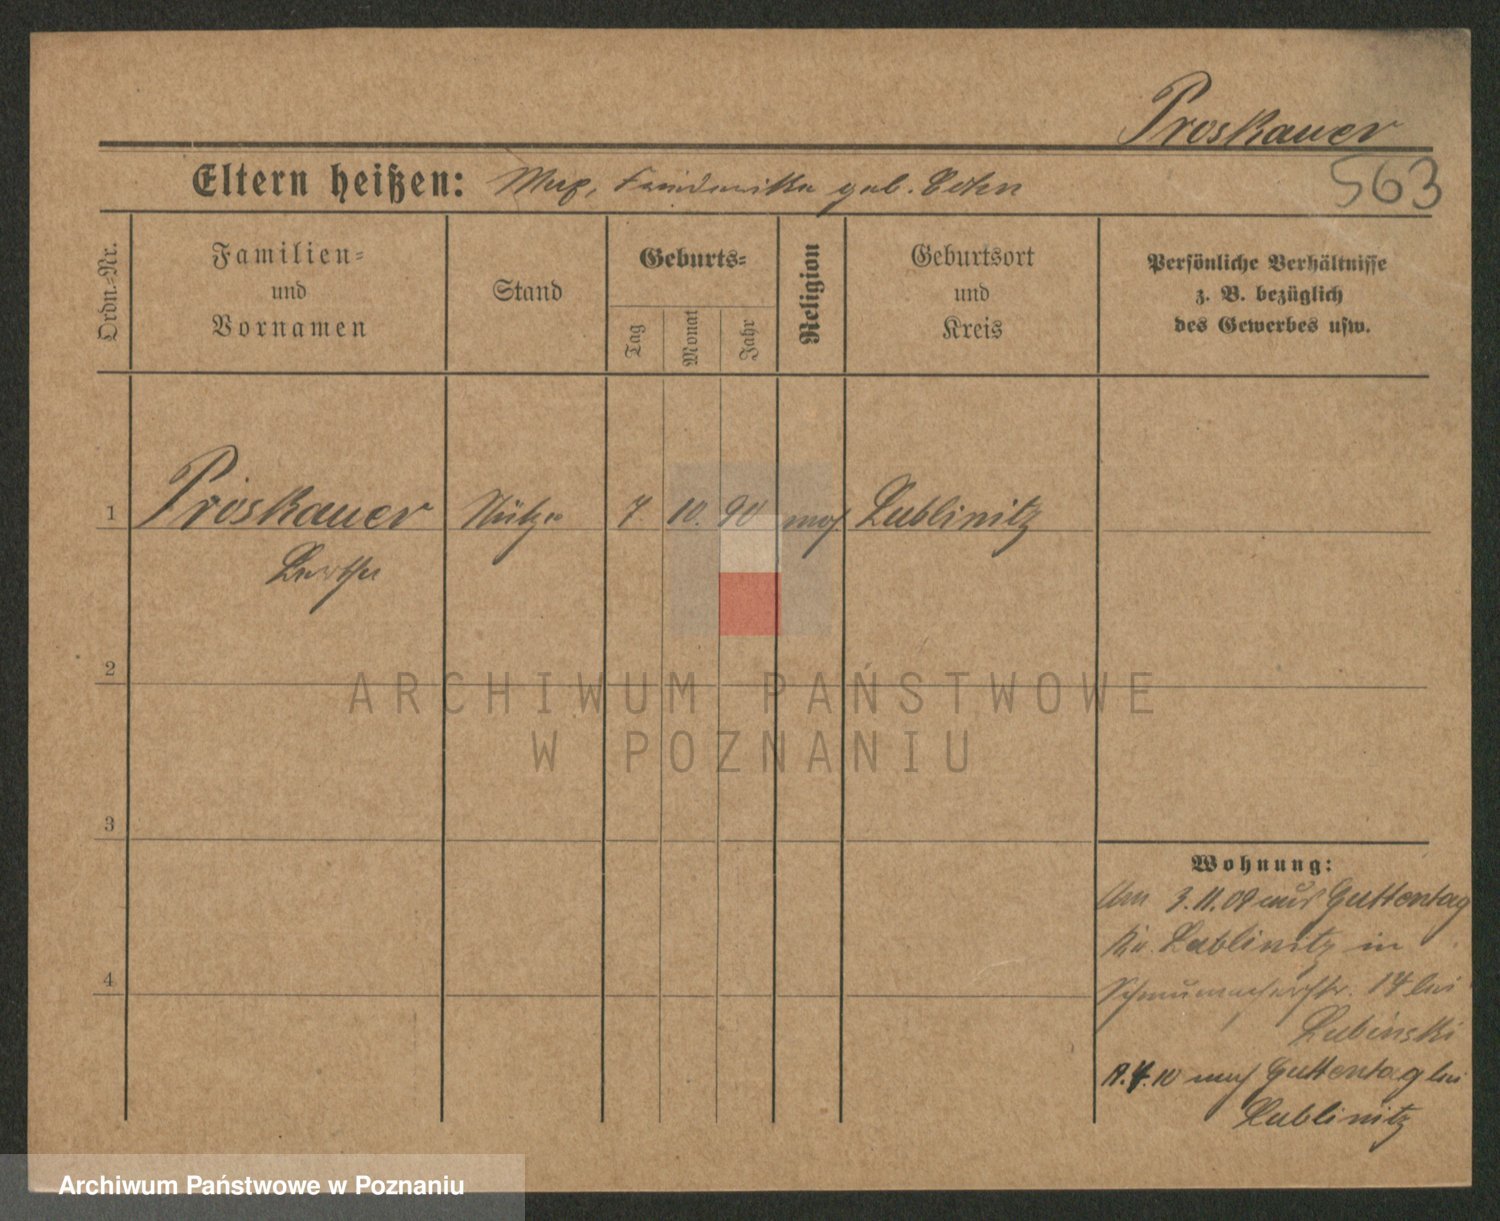 Proskauer
563
Eltern heißen: Max, Friederike geb. Cohn
Ordn.-Nr.
Familien-
und
Vornamen
Stand
Geburts-
Tag
Monat
Jahr
Religion
Geburtsort
und
Kreis
Persönliche Verhältnisse
z. B. bezüglich
des Gewerbes usw.
1 Proskauer Stütze 7. 10. 90 mos Lublinitz
2
3
4
Wohnung:
Am 3.11.09 aus Guttentag
Kr. Lublinitz in
14 bei
Lubinski
4.10 nach Guttentag bei
Lublinitz
ARCHIWUM PAŃSTWOWE
W POZNANIU
Archiwum Państwowe w Poznaniu